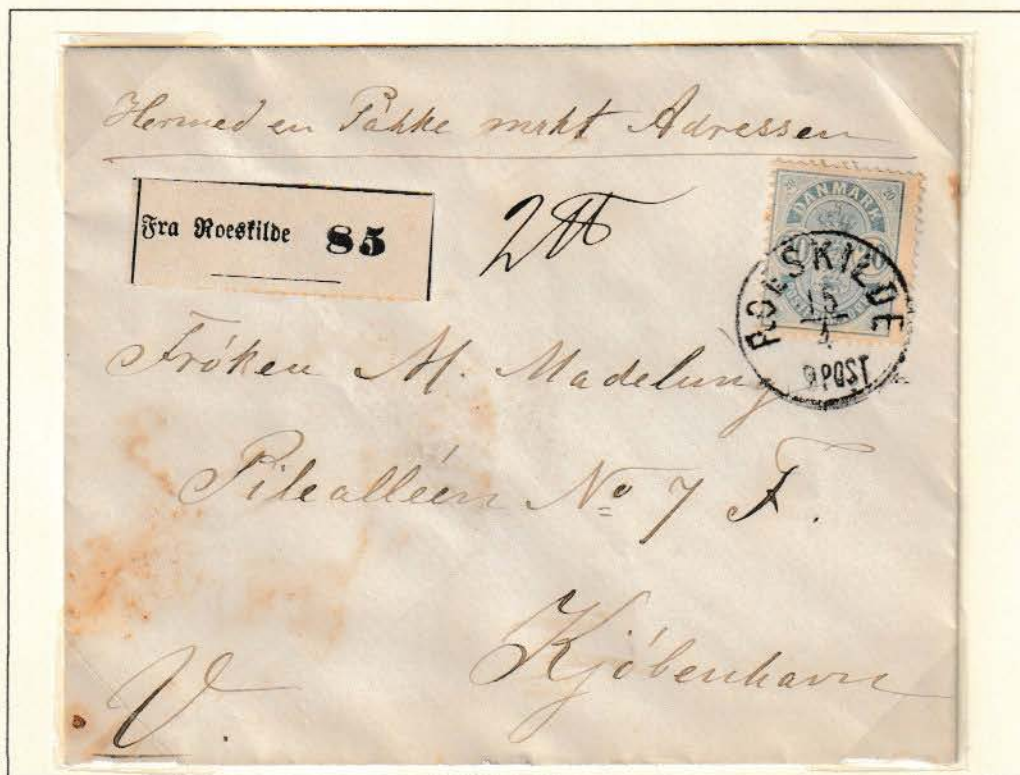 Hermed en Pakke mrkt Adressen
Fra Roeskilde 85
2 ℔
20 DANMARK 20
20 20
ROESKILDE
15
POST
Fröken M. Madelung
Pilealléen No 7 F.
Kjöbenhavn
V.